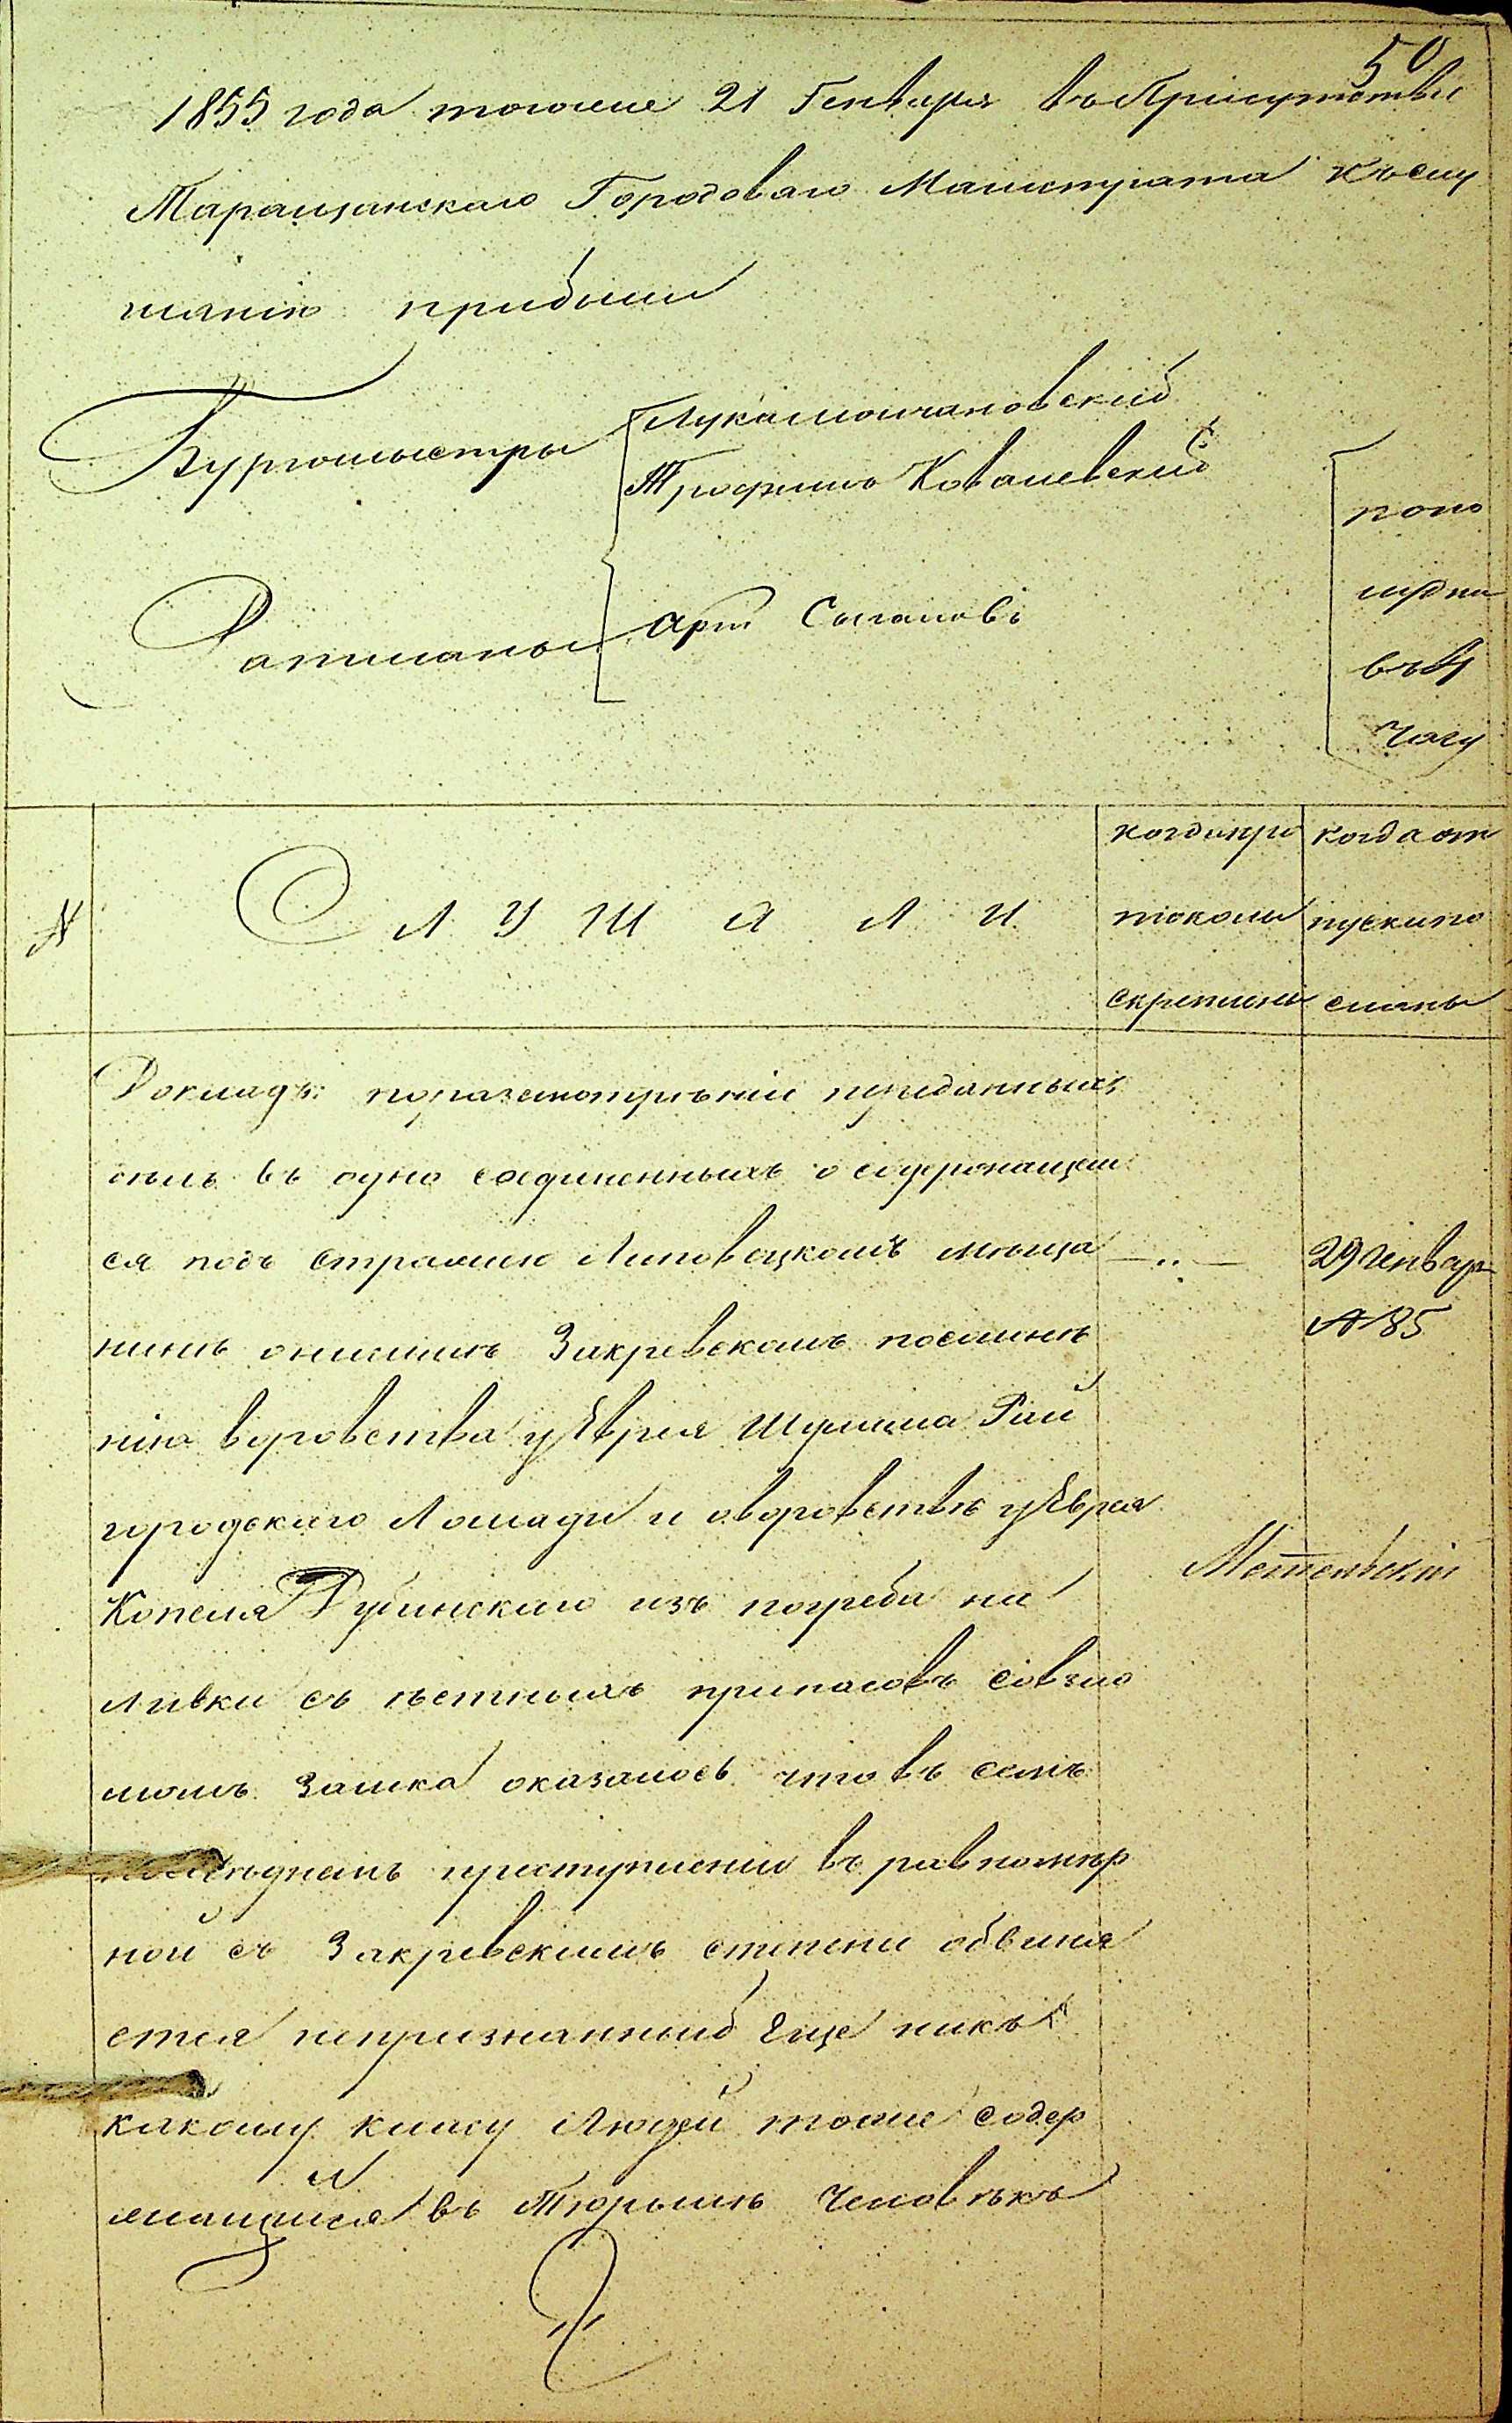 50
1855 года тогоже 21 Генваря въ Присутствіе
Таращанскаго Городоваго Магистрата къ слу
шанію прибыли
Бургомыстры
Лука Молчановский
Трофимъ Ковалевский
Ратманы
попо
лудни
въ
часу
№
СЛУШАЛИ
когда про
токолы
скреплены
когда от
пуски по
сланы
Докладъ: по разсмотрѣніи преданныхъ
въ одно соединенныхъ о содержащем
ся подъ стражею Липовецкомъ мѣща
нинѣ Онисимѣ Закревскомъ по
нію воровства у Еврея Шулима Рай
городскаго Лошади и о воровствѣ у Еврея
Копеля Дубинскаго изъ погреба на
ливки съ ѣстныхъ припасовъ со взло
момъ замка оказалось что въ семъ
послѣднемъ преступленіи въ равномѣр
ной съ Закревскимъ степени обвиня
ется непризнанный Еще никъ
какому класу Людей тоже содер
жащийся въ Тюрьмѣ Человѣкъ
29 Генвар
№ 85